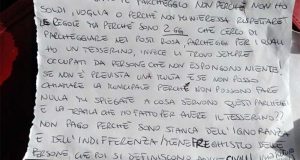 PARCHEGGIO NON PERCHÉ NON HO
SOLDI, VOGLIA O PERCHÉ NON MI INTERESSA RISPETTARE
LE REGOLE MA PERCHÉ SONO 2 GG CHE CERCO DI
PARCHEGGIARE NEI POSTI ROSA, PARCHEGGI PER I QUALI
HO UN TESSERINO, INVECE LI TROVO SEMPRE
OCCUPATI DA PERSONE CHE NON ESPONGONO NIENTE.
SE NON È PREVISTA UNA MULTA E SE NON POSSO
CHIAMARE LA MUNICIPALE PERCHÉ NON POSSONO FARE
NULLA MI SPIEGATE A COSA SERVONO QUESTI PARCHEGGI
E LA TRAFILA CHE HO FATTO PER AVERE IL TESSERINO??
NON PAGO PERCHÉ SONO STANCA DELL'IGNORANZA
E DELL'INDIFFERENZA/MENEFREGHISMO DELLE
PERSONE CHE POI SI DEFINISCONO